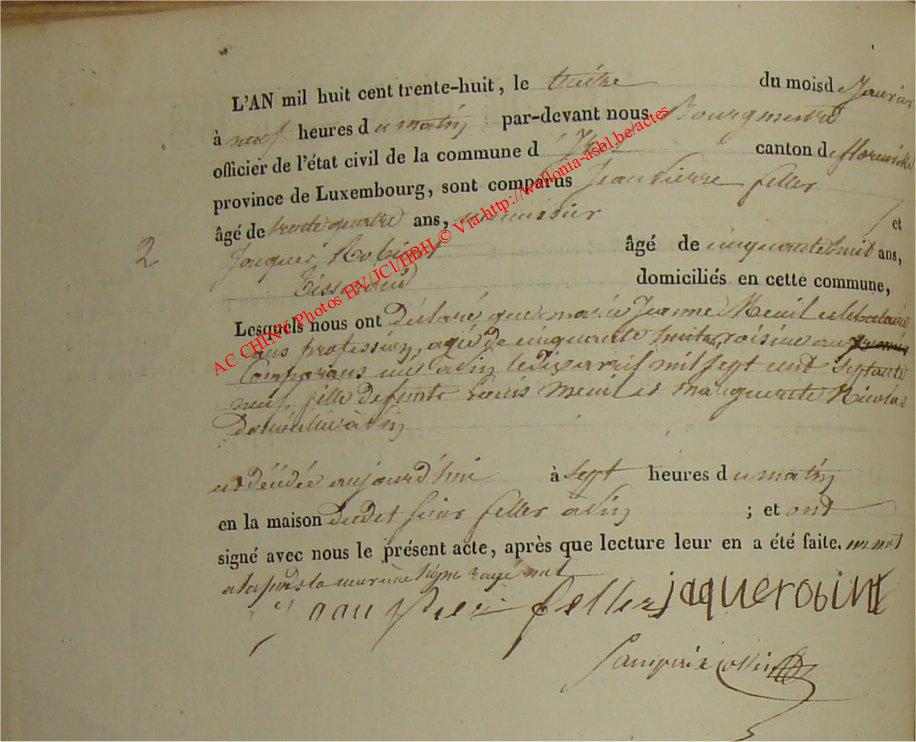 L'AN mil huit cent trente-huit, le treize du mois de Janvier
à neuf heures du matin par-devant nous Bourgmestre
officier de l'état civil de la commune d canton de florenville
province de Luxembourg, sont comparus Jean Pierre feller
âgé de trente quatre ans, et
2 Jaques Robinet âgé de cinquante huit ans,
Tisserand domiciliés en cette commune,
Lesquels nous ont Déclaré que marie Jeanne Meuil celebataire
sans profession, agée de cinquante huit, voisine aux
Comparans née a le dix avril mil sept cent septante
neuf, fille de Louis meuil et marguerite Nicolas
Domicilié à
est décédée aujourd'hui à sept heures du matin
en la maison dudit sieur feller a ; et ont
signé avec nous le présent acte, après que lecture leur en a été faite. un mot
a la ligne rayé nul
jean feller jaquerobinet
AC CHINY Photos HV/JCI/HBH © Via http://wallonia-asbl.be/actes